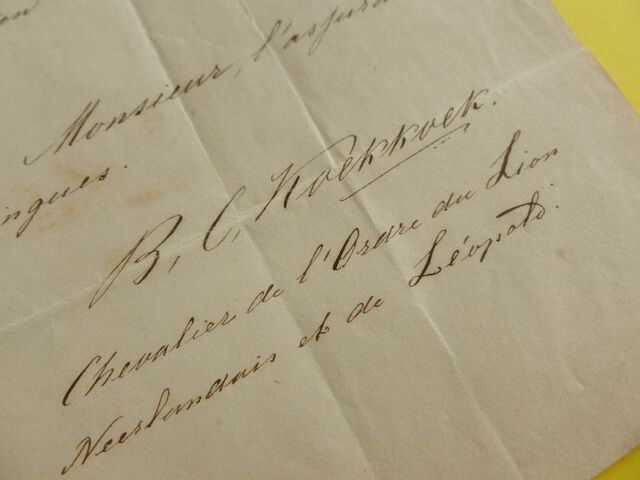 Monsieur, l'assura
ingues.
B. C. Koekkoek.
Chevalier de l'Ordre du Lion
Neerlandais et de Léopold.